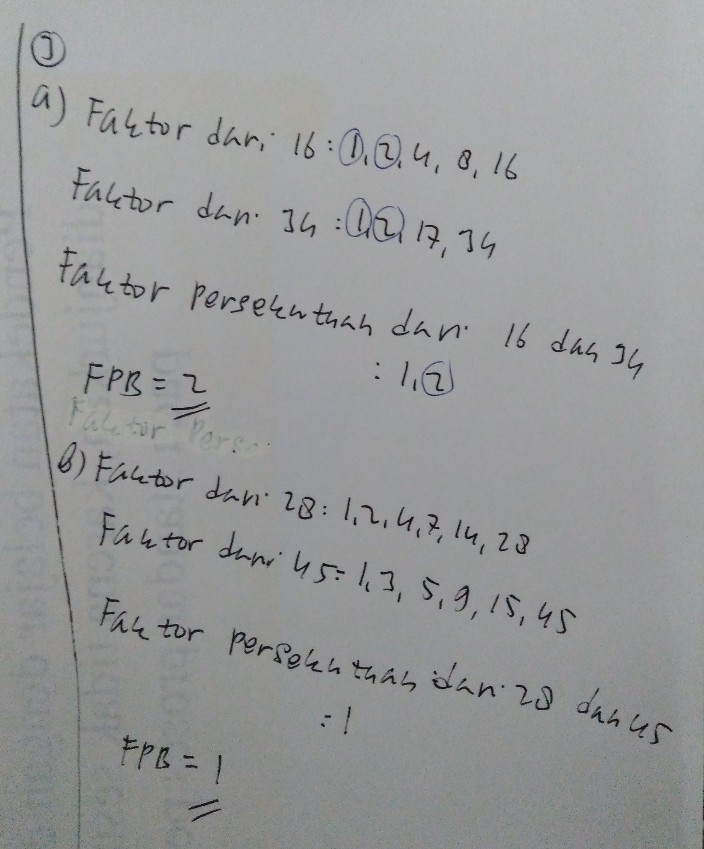 3
a) Faktor dari 16 : 1, 2, 4, 8, 16
Faktor dari 34 : 1, 2, 17, 34
Faktor persekutuan dari 16 dan 34
: 1, 2
FPB = 2
Faktor Perse
b) Faktor dari 28 : 1, 2, 4, 7, 14, 28
Faktor dari 45 = 1, 3, 5, 9, 15, 45
Faktor persekutuan dari 28 dan 45
: 1
FPB = 1